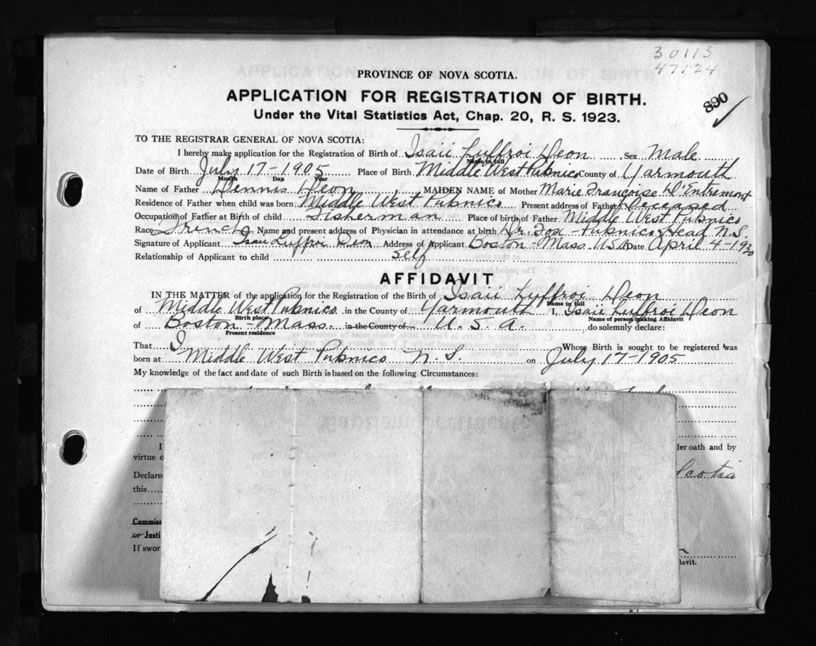 30113
47124
890
PROVINCE OF NOVA SCOTIA.
APPLICATION FOR REGISTRATION OF BIRTH.
Under the Vital Statistics Act, Chap. 20, R. S. 1923.
TO THE REGISTRAR GENERAL OF NOVA SCOTIA:
I hereby make application for the Registration of Birth of Isaii Luffroi Deon Sex Male
Name in full
Date of Birth July 17-1905 Place of Birth Middle West Pubnico County of Yarmouth
Month Day Year
Name of Father Dennis Deon MAIDEN NAME of Mother Marie Françoise D'Entremont
Residence of Father when child was born Middle West Pubnico Present address of Father Deceased
Occupation of Father at Birth of child Fisherman Place of birth of Father Middle West Pubnico
Race French Name and present address of Physician in attendance at birth Dr. Fox - Pubnico Head N.S.
Signature of Applicant Isaii Luffroi Deon Address of Applicant Boston - Mass. U.S.A. Date April 4-19
Relationship of Applicant to child self
AFFIDAVIT
IN THE MATTER of the application for the Registration of the Birth of Isaii Luffroi Deon
Name in full
of Middle West Pubnico in the County of Yarmouth I, Isaii Luffroi Deon
Birth place Name of person making Affidavit
of Boston - Mass. in the County of U. S. A. do solemnly declare:
Present residence
That I Whose Birth is sought to be registered was
born at Middle West Pubnico N. S. on July 17-1905
My knowledge of the fact and date of such Birth is based on the following Circumstances:
I der oath and by
virtue o
Declare Scotia
this
Commiss
or Justi
If swor davit.